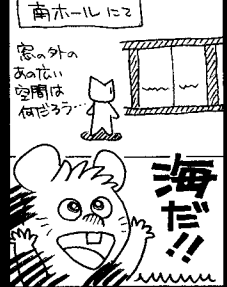 南ホールにて
窓の外の
あの広い
空間は
何だろう…
海だ!!